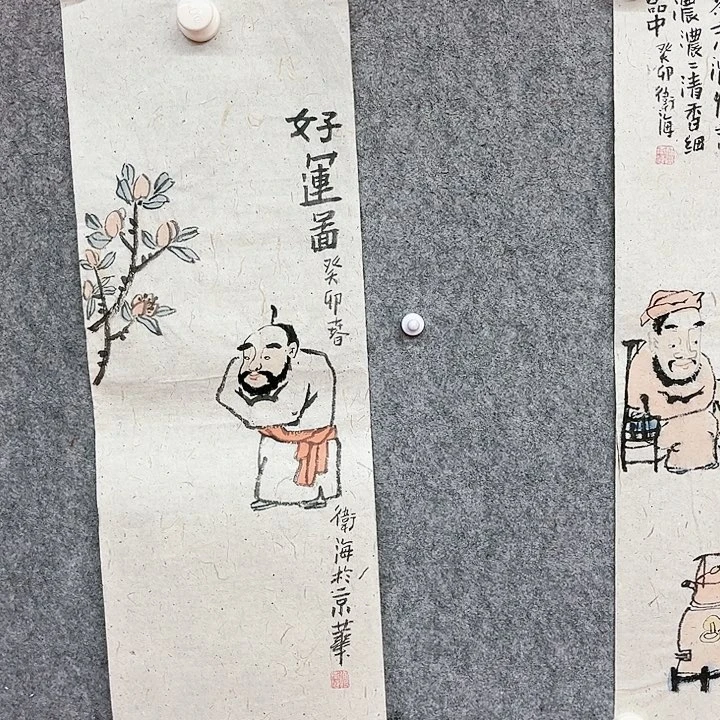 好運啚
癸卯春
衛海於京華
濃濃二清香細
品中
癸卯衛海